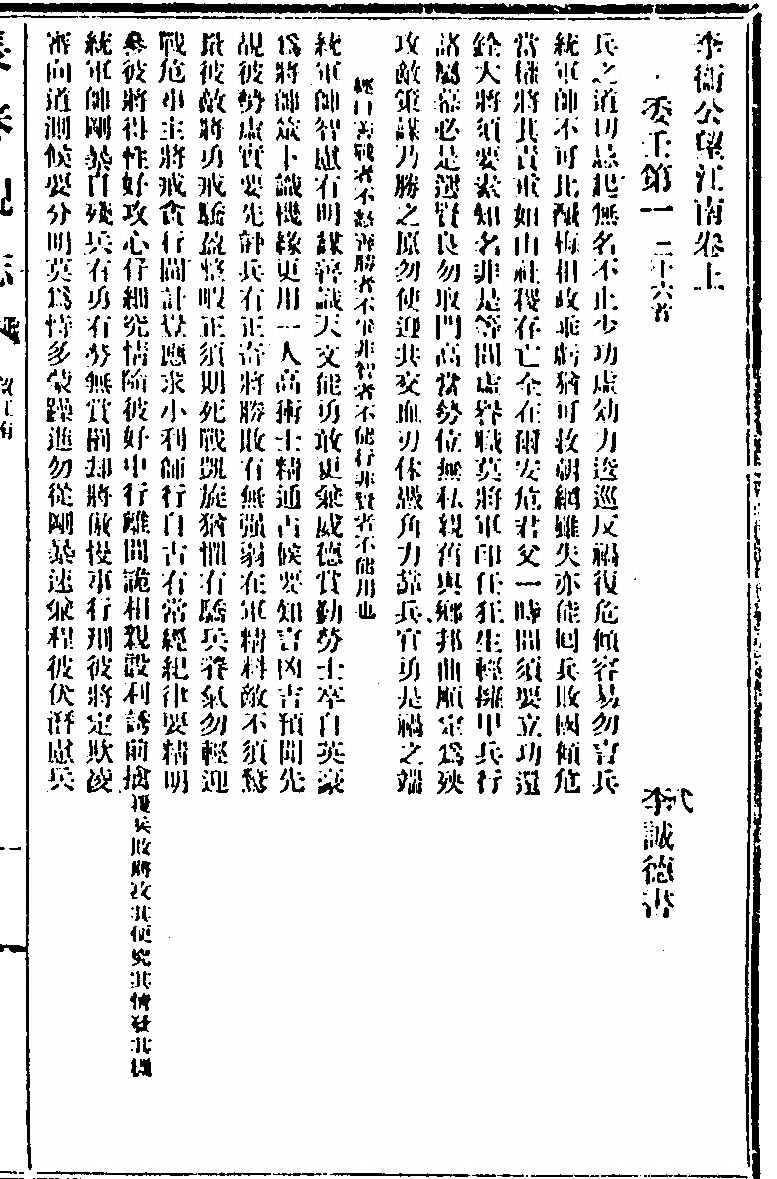 李衞公望江南卷上
委任第一 二十六首
李誠德書
兵之道切忌起無名不止少功虛効力逡巡反禍復危傾容易勿言兵
統軍師不可比鹽梅相政乖虧猶可救朝綱雖失亦能囘兵敗國傾危
當權將其責重如山社稷存亡全在爾安危君父一時間須要立功還
銓大將須要素知名非是等閒虛界職莫將軍印任狂生輕擁甲兵行
諸屬幕必是選賢良勿取門高當勢位無私親舊與鄉邦曲順定爲殃
攻敵策謀乃勝之原勿使迎兵交血刃休憑角力靠兵官功是禍之端
經曰善戰者不怒善勝者不爭非智者不能行非賢者不能用也
統軍師智慮有明謀善識天文能勇敢更兼威德賞勤勞士卒自英豪
爲將帥筮卜識機緣更用一人高術士精通占候要知言凶吉預聞先
覘彼勢虛實要先評兵有正奇將勝敗有無强弱在軍精料敵不須驚
量彼敵將勇戒驕盈整暇正須期死戰凱旋猶懼有驕兵養氣勿輕迎
戰危事主將戒貪行間計豈應求小利師行自古有常經紀律要精明
彼將得性好攻心仔細究情隨彼好中行離間詭相親設利誘前擒 兵敗將攻其便究其情疑其機
統軍帥剛暴自殘兵有勇有勞無賞罰却將傲慢事行刑彼將定欺凌
審向道測候要分明莫爲情多蒙躁進勿從剛暴速兼程彼伏潛慮兵
望江南